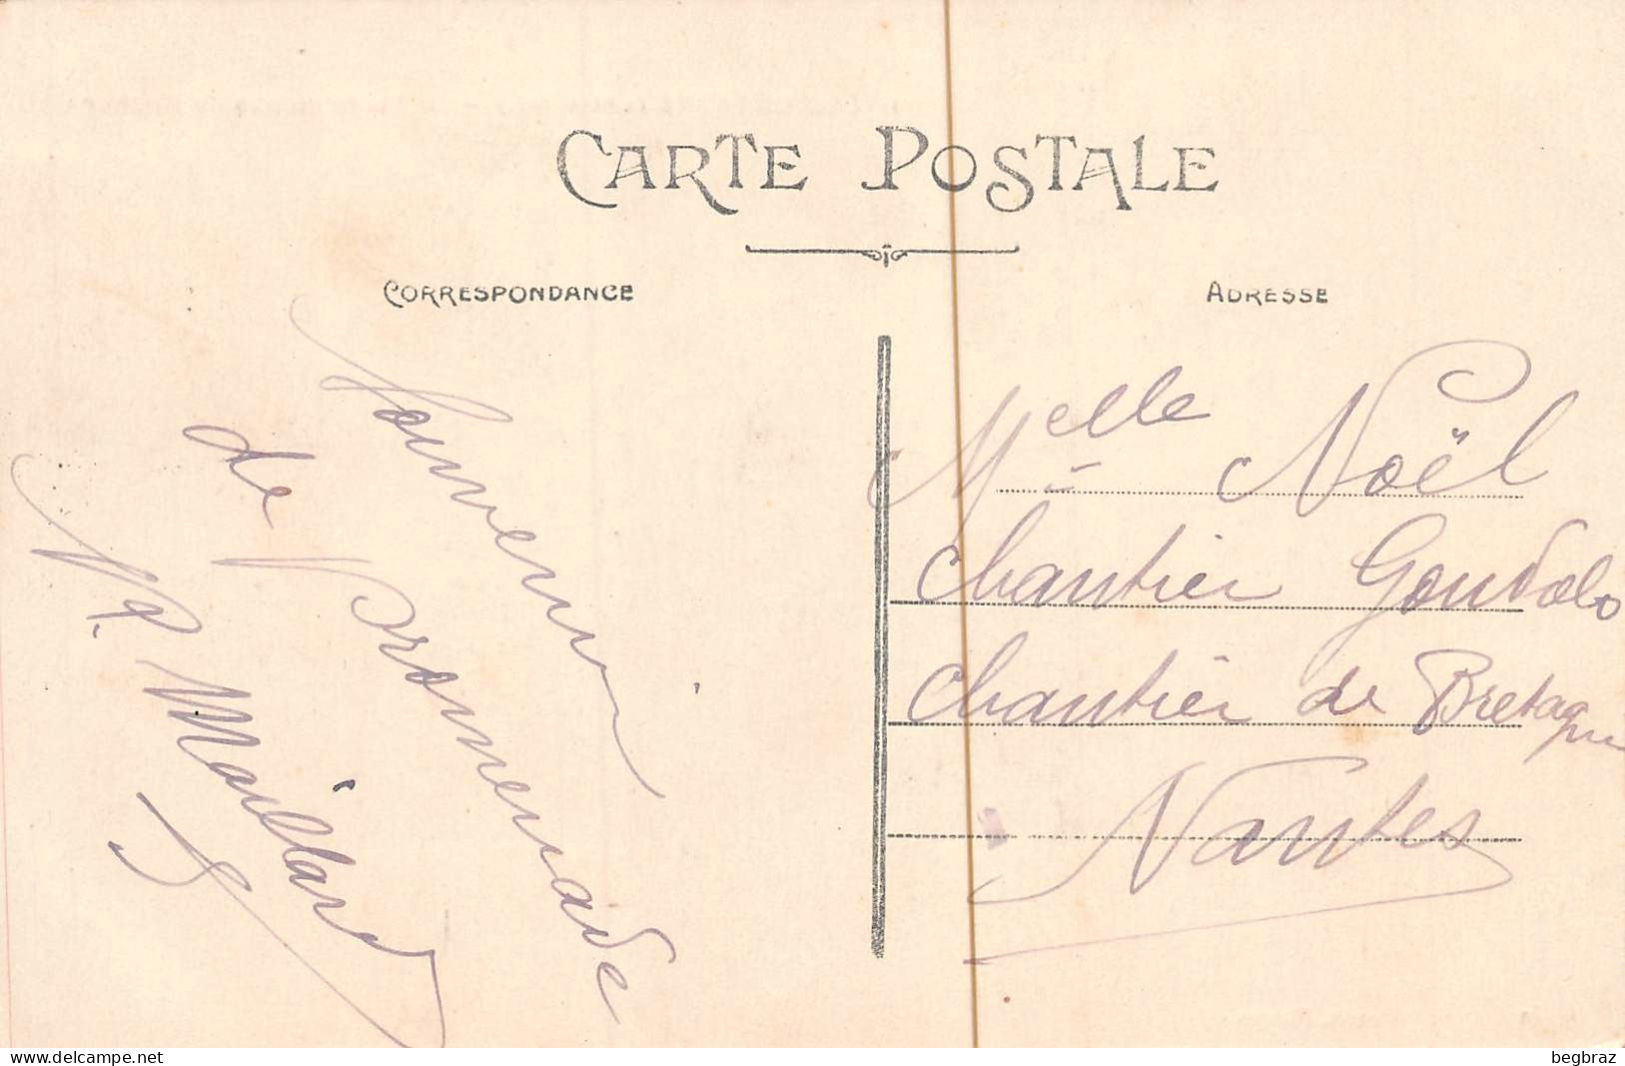 CARTE POSTALE
CORRESPONDANCE
ADRESSE
Souvenir
de Promenade
Maillard
Melle Noël
Chantier Goudalo
Chantier de Bretagne
Nantes
www.delcampe.net
begbraz